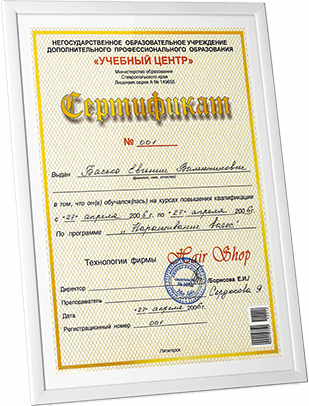 НЕГОСУДАРСТВЕННОЕ ОБРАЗОВАТЕЛЬНОЕ УЧРЕЖДЕНИЕ
ДОПОЛНИТЕЛЬНОГО ПРОФЕССИОНАЛЬНОГО ОБРАЗОВАНИЯ
«УЧЕБНЫЙ ЦЕНТР»
Министерство образования
Ставропольского края
Лицензия серия А № 149655
Сертификат
№ 001
Выдан Басько Евгении Валентиновне
(фамилия, имя, отчество)
в том, что он(а) обучался(лась) на курсах повышения квалификации
с «27» апреля 2006 г. по «27» апреля 2006 г.
По программе „Наращивание волос"
Технологии фирмы Hair Shop
Директор /Борисова Е.И./
Преподаватель Сердюкова Я.
Дата «27» апреля 2006 г.
Регистрационный номер 001
Пятигорск